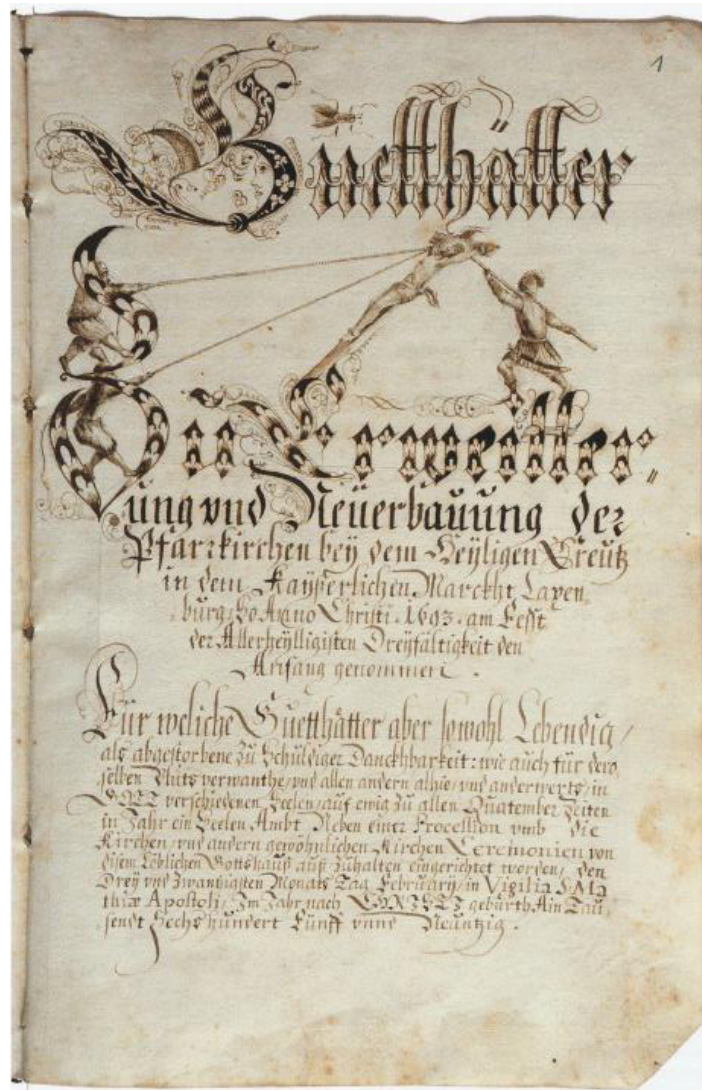 1
Guetthätter
Zu Erweitter=
ung vnd Neüerbauüng der
Pfarrkirchen bey dem Heyligen Creütz
in dem Kayßerlichen Marckht Laxen=
burg, So Anno Christi 1693. am Fesst
der Allerheylligisten Dreyfältigkeit den
Anfang genommen.
Für weliche Guetthätter aber sowohl Lebendig /
als abgestorbene zu Schüldiger Danckhbarkeit: wie auch für dero
selben Bluts verwanthe, vnd allen andern alhie, vnd anderwerts, in
GOTT verschiedenen Seelen, auf ewig zu allen Quatember Zeiten
in Jahr ein Seelen Ambt Neben einer Procession vmb die
Kirchen, vnd andern gewöhnlichen Kirchen Ceremonien von
disem Löblichen Gottshauß auß zuhalten eingerichtet worden, den
Drey vnd Zwantzigsten Monats Tag February, in Vigilia S. Ma
thiæ Apostoli, Im Jahr nach CHRISTI gebürth Ain Tau
sendt Sechs Hundert Fünff vnnd Neüntzig.